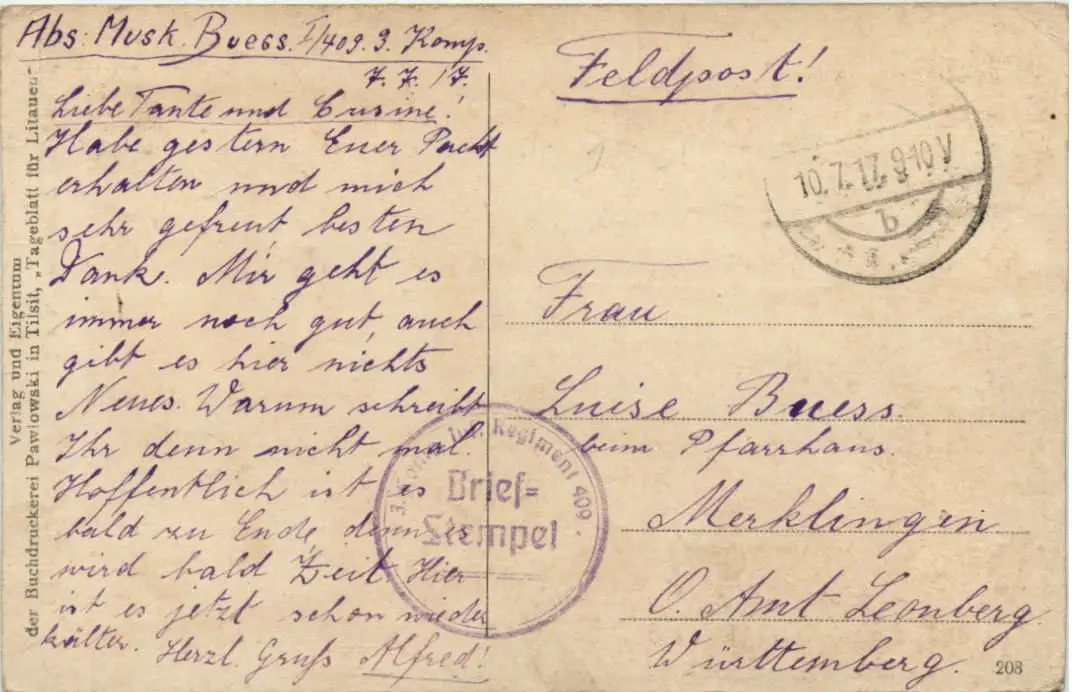 Abs: Musk. Buess. I/409. 9. Komp.
7. 7. 17.
Liebe Tante und Cusine!
Habe gestern Euer Packt
erhalten und mich
sehr gefreut besten
Dank. Mir geht es
immer noch gut, auch
gibt es hier nichts
Neues. Warum schreibt
Ihr denn nicht mal.
Hoffentlich ist es
bald zu Ende denn es
wird bald Zeit Hier
ist es jetzt schon wieder
kälter. Herzl. Gruß Alfred!
Verlag und Eigentum
der Buchdruckerei Pawlowski in Tilsit, „Tageblatt für Litauen
Feldpost!
10.7.17. 9-10 V
b
Frau
Luise Buess.
beim Pfarrhaus.
Merklingen
O. Amt Leonberg
Württemberg.
Inf. Regiment 409.
Brief=
Stempel
208